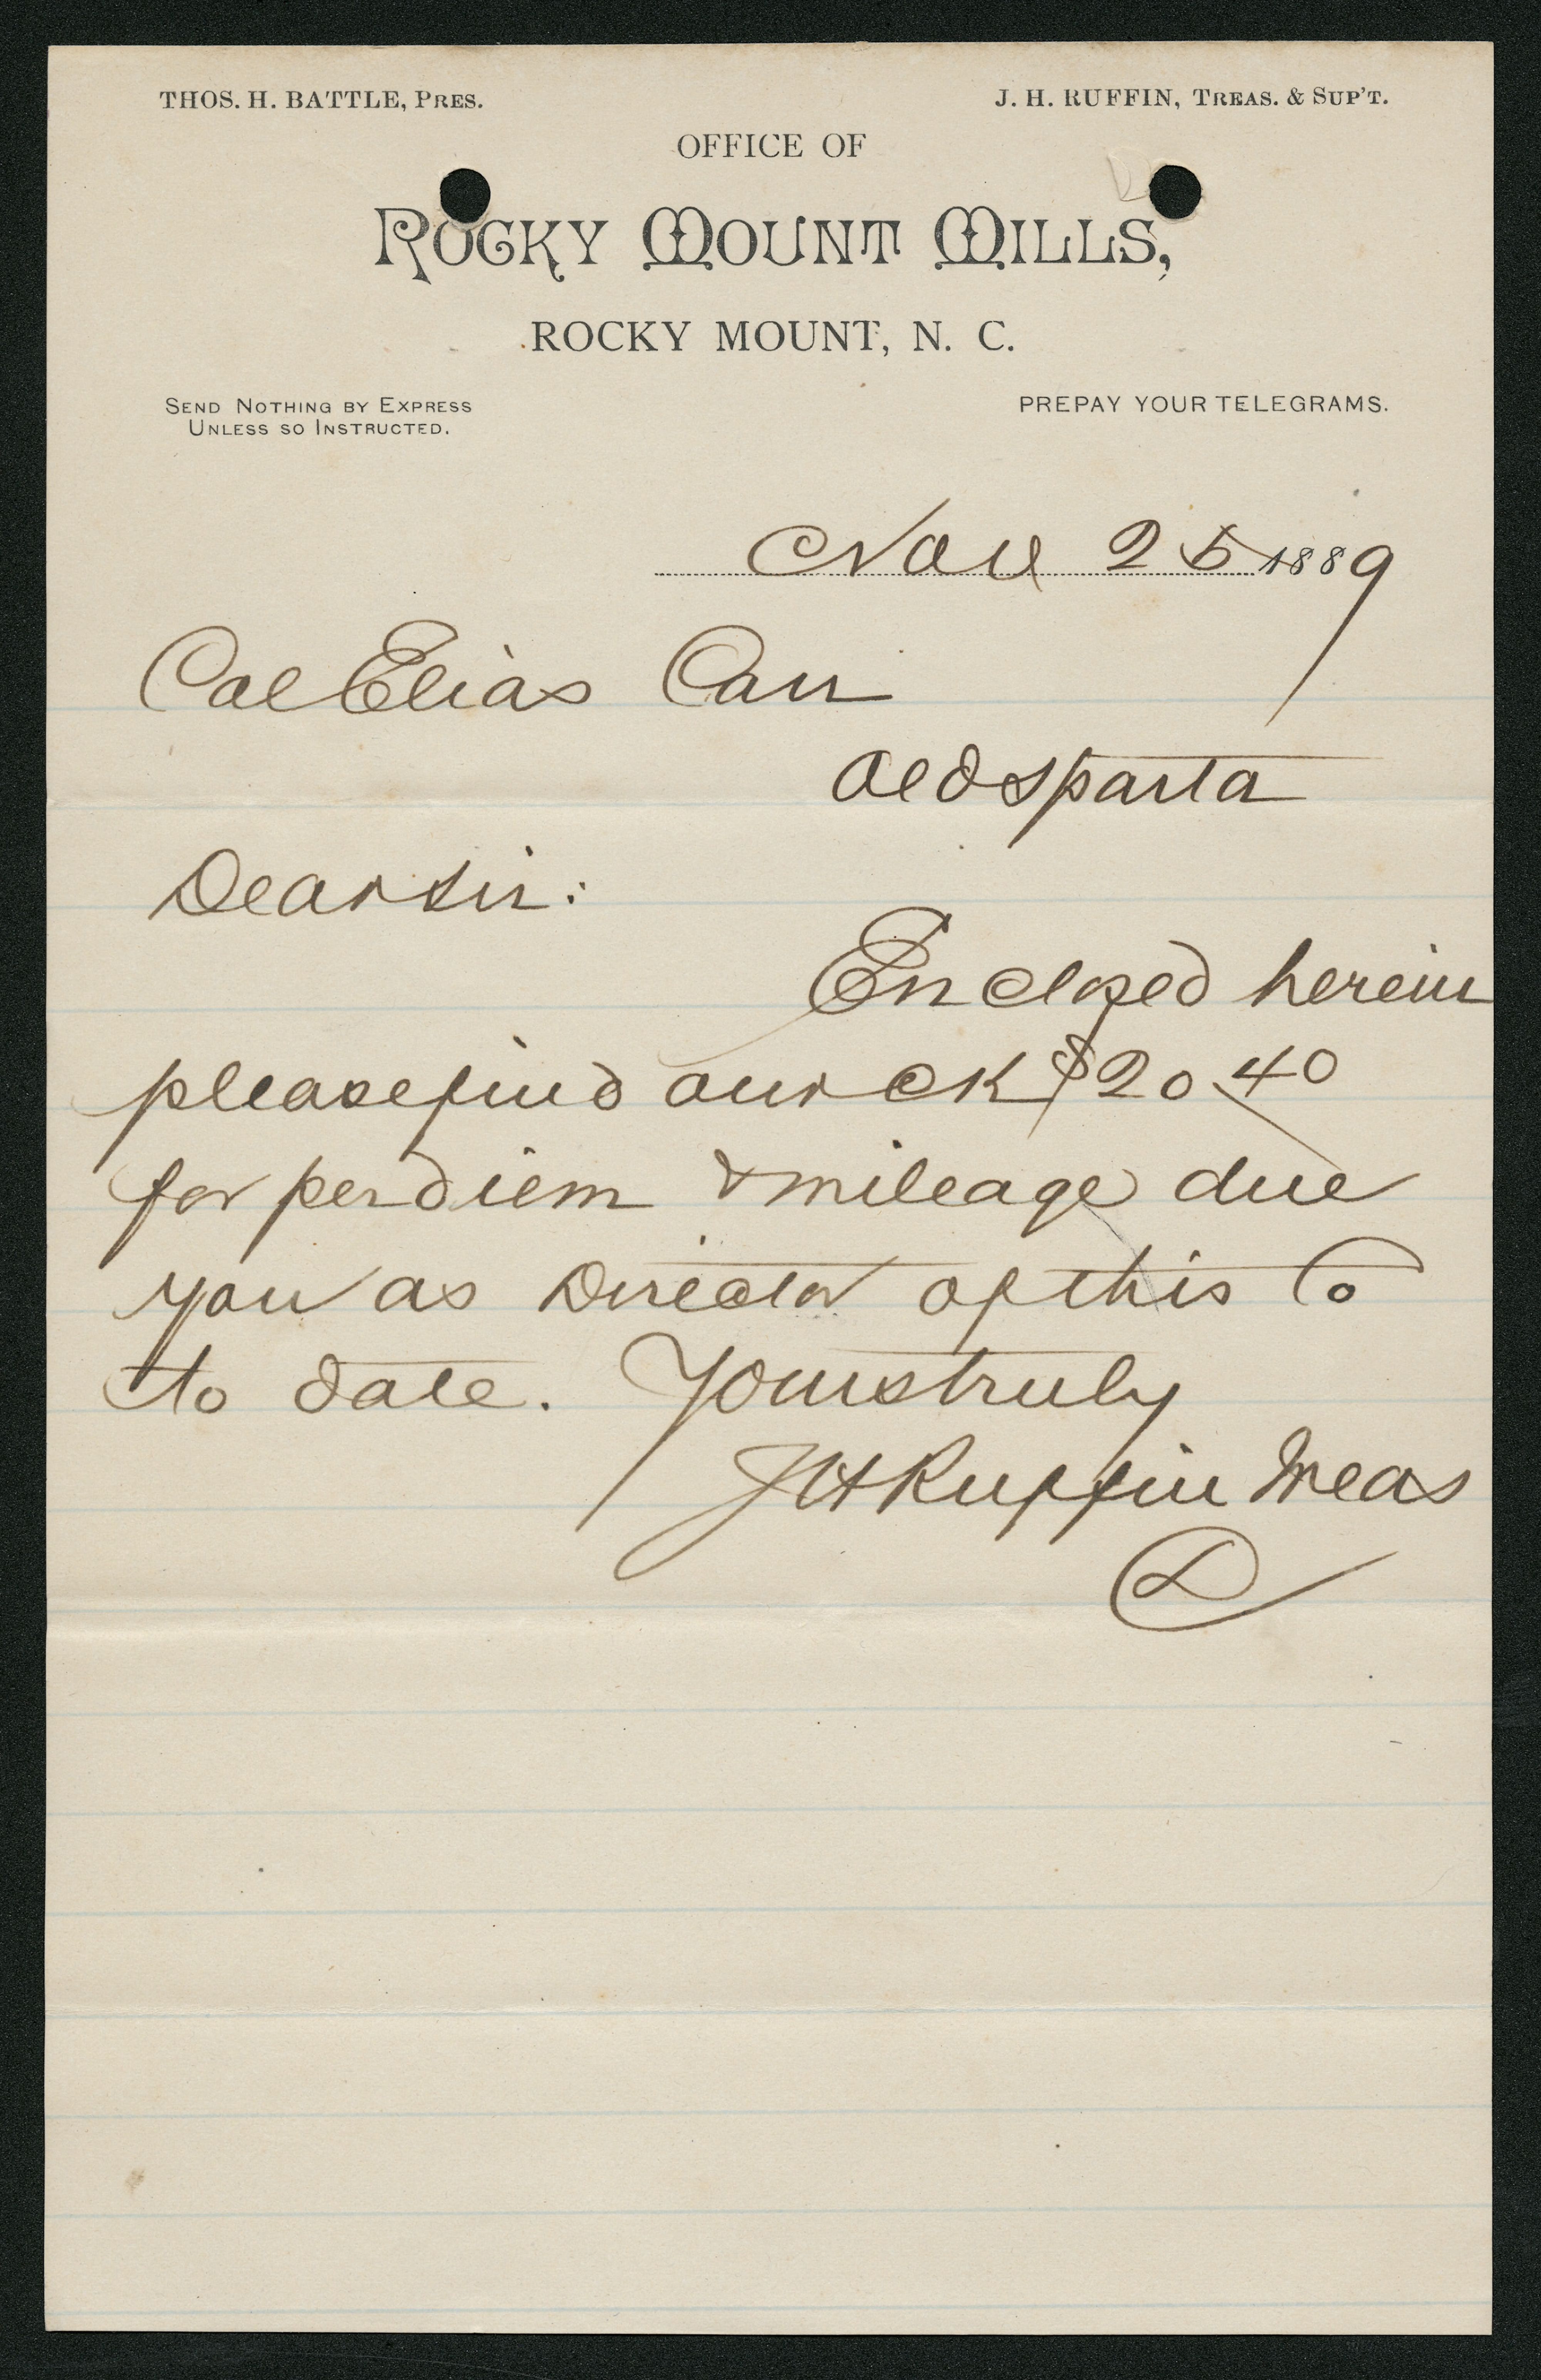 THOS. H. BATTLE, PRES.
J. H. RUFFIN, TREAS. & SUP'T.
OFFICE OF
ROCKY MOUNT MILLS,
ROCKY MOUNT, N. C.
SEND NOTHING BY EXPRESS
UNLESS SO INSTRUCTED.
PREPAY YOUR TELEGRAMS.
Nov 25 1889
Col Elias Carr
Old Sparta
Dear Sir:
Enclosed herein
please find our ck $20.40
for per diem & mileage due
you as Director of this Co
to date. Yours truly
J H Ruffin Treas